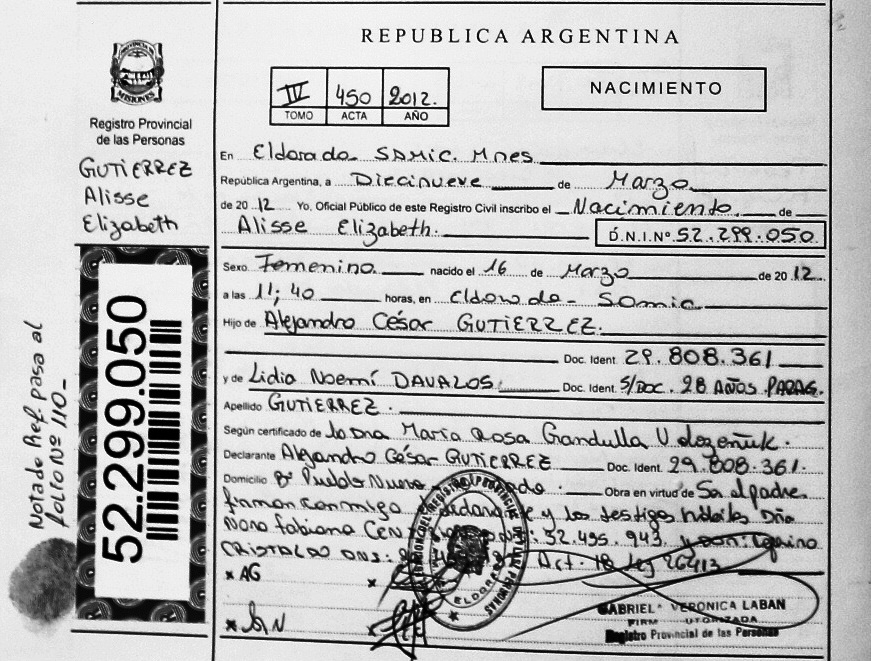 REPUBLICA ARGENTINA
PROVINCIA DE
MISIONES
Registro Provincial
de las Personas
GUTIERREZ
Alisse
Elizabeth
IV 450 2012.
TOMO ACTA AÑO
NACIMIENTO
En Eldorado SAMIC. Mnes
República Argentina, a Diecinueve de Marzo
de 2012 Yo, Oficial Público de este Registro Civil inscribo el Nacimiento de
Alisse Elizabeth. D.N.I.Nº 52.299.050
Sexo Femenino nacido el 16 de Marzo de 2012
a las 11;40 horas, en Eldorado - Samic
Hijo de Alejandro César GUTIERREZ.
Doc. Ident. 29.808.361
y de Lidia Noemí DAVALOS. Doc. Ident. S/DOC. 28 AÑOS PARAG.
Apellido GUTIERREZ.
Según certificado de la Dra Maria Rosa Gandulla
Declarante Alejandro César GUTIERREZ Doc. Ident. 29.808.361.
Domicilio Bº Pueblo Nuevo Obra en virtud de Ser el padre
firman conmigo y los testigos hábiles Dña
Fabiana 32.495.943. y don:
CRISTALDO DNI: Art. 18 Ley 26413
x AG x
x x
ELDORADO
GABRIEL VERONICA LABAN
Registro Provincial de las Personas
52.299.050
Nota de Ref. pasa al
folio Nº 110-